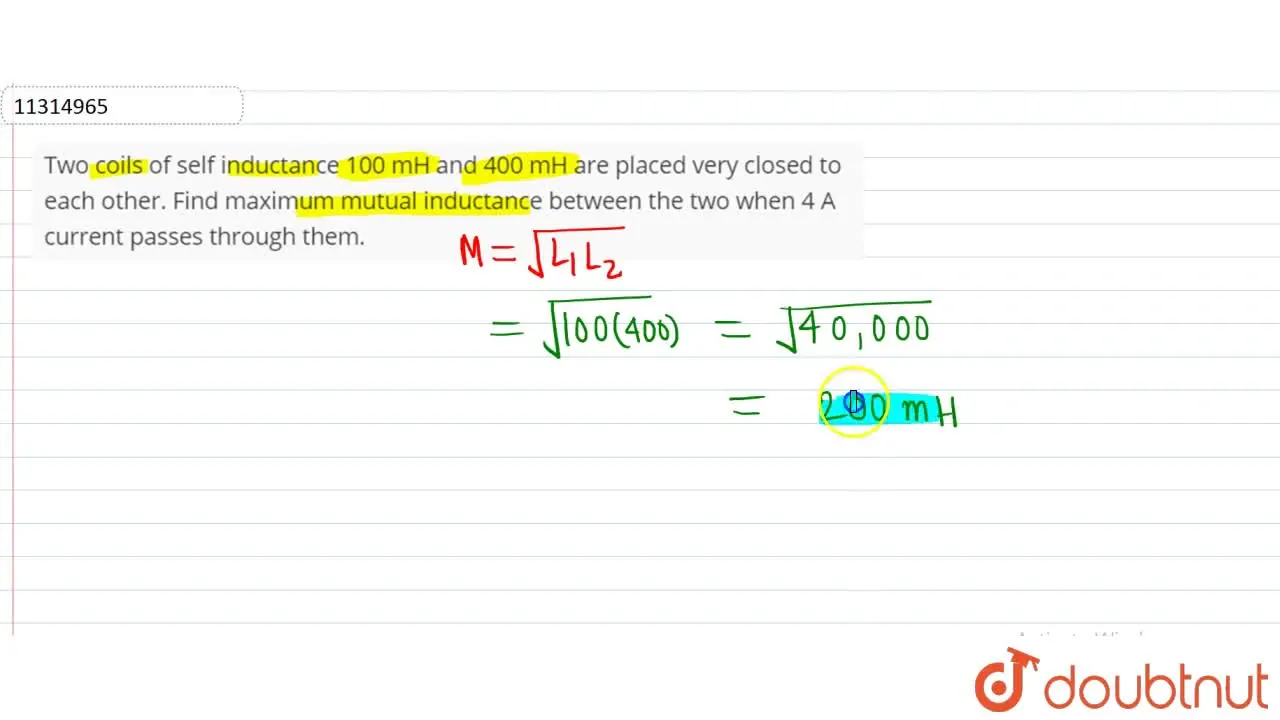 11314965
Two coils of self inductance 100 mH and 400 mH are placed very closed to
each other. Find maximum mutual inductance between the two when 4 A
current passes through them.
M = √L₁L₂
= √100(400) = √40,000
= 200 mH
doubtnut